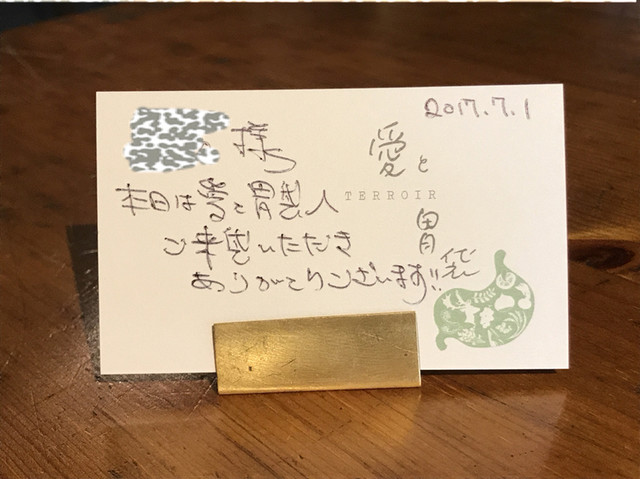 2017.7.1
様
愛と
TERROIR
胃袋
本日は愛と胃袋に
ご来店いただき
ありがとうございます!!